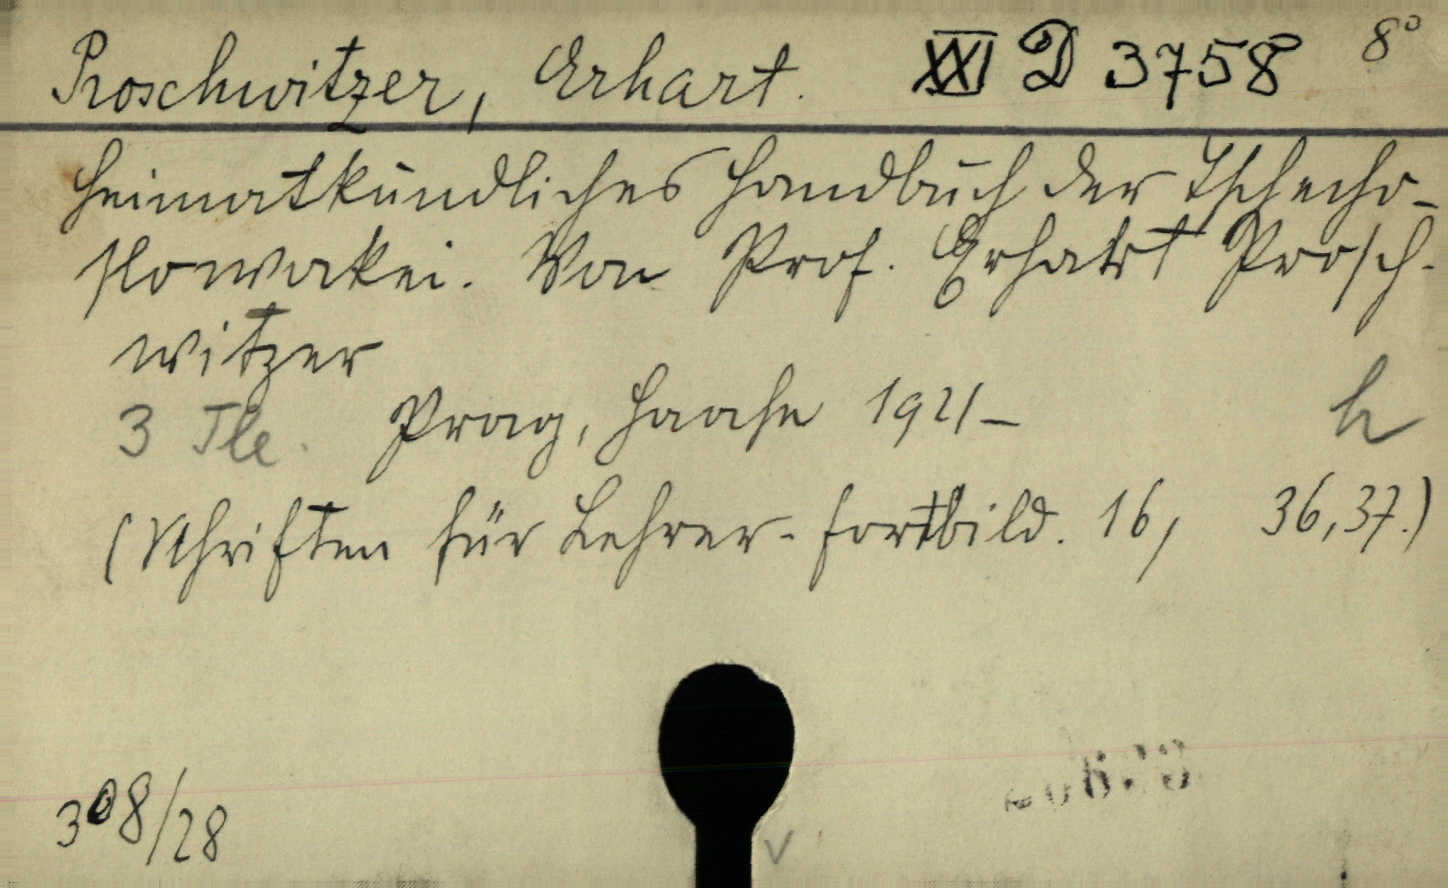 Proschwitzer, Erhart. XXI D 3758 8°
Heimatkundliches Handbuch der Tschecho-
slowakei. Von Prof. Erhart Prosch-
witzer
3 Tle. Prag, Haase 1921- h
(Schriften für Lehrer-Fortbild. 16, 36,37.)
308/28